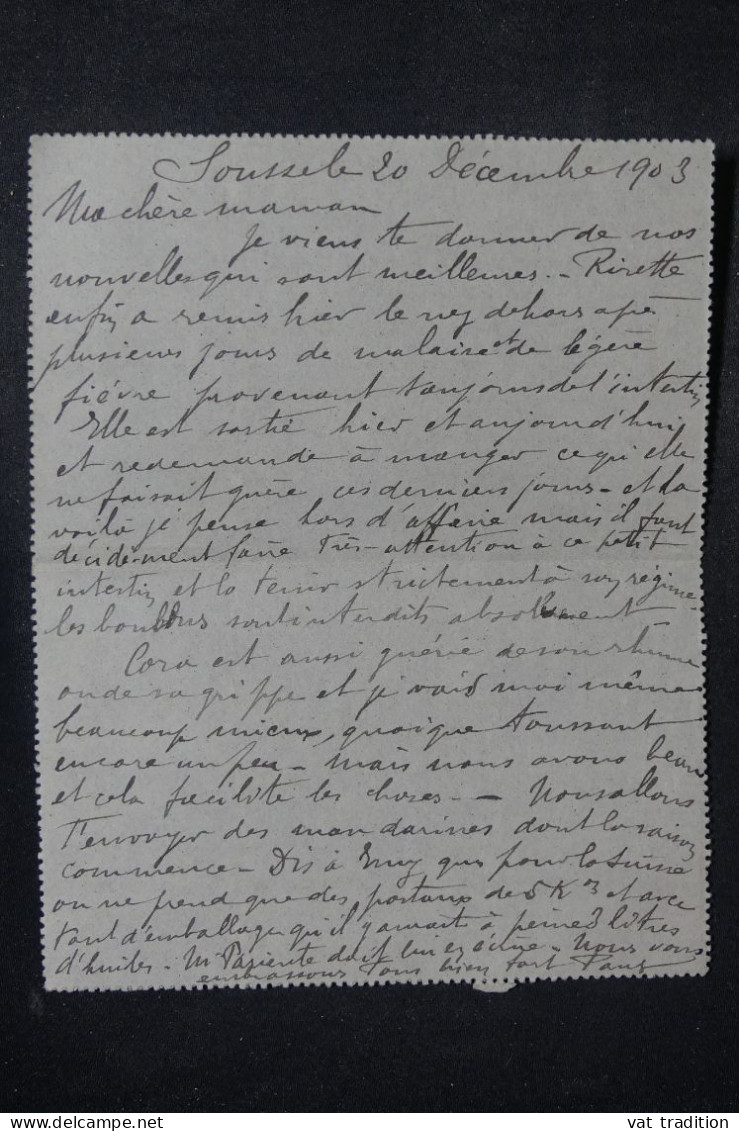 Sousse le 20 Décembre 1903
Ma chère maman
Je viens te donner de nos
nouvelles qui sont meilleures. - Rirette
enfin a remis hier le nez dehors apè
plusieurs jours de malaise et de légère
fièvre provenant toujours de l'intestin
Elle est sortie hier et aujourd'hui
et redemande à manger ce qu'elle
ne faisait guère ces derniers jours - et la
voilà je pense hors d'affaire mais il faut
décidément faire très-attention à ce petit
intestin et la tenir strictement à son régime -
les bonbons sont interdits absolument -
Cora est aussi guérie de son rhume
ou de sa grippe et je vais moi même
beaucoup mieux, quoique toussant
encore un peu - mais nous avons beau
et cela facilite les choses - - Nous allons
t'envoyer des mandarines dont la saison
commence - Dis à que pour la Suisse
on ne prend que des postaux de 5 K os et avec
tant d'emballage qu'il y aurait à peine 3 litres
d'huiles - M Pariente doit lui écrire - Nous vous
embrassons tous bien fort
vat tradition